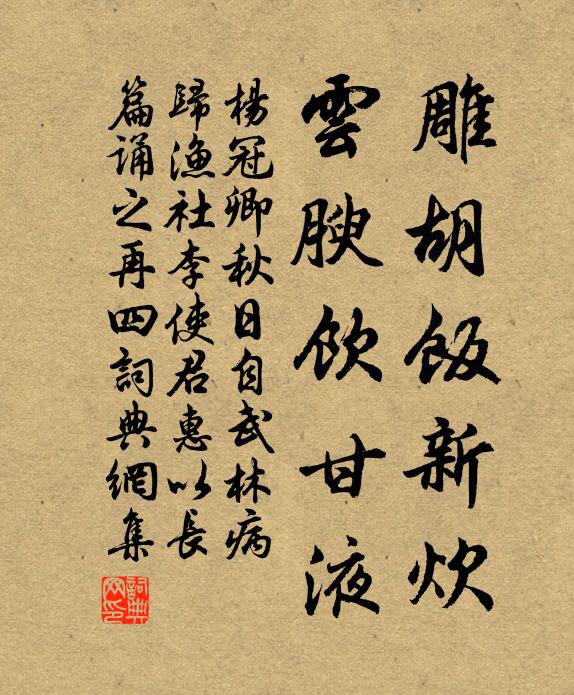 雕胡飯新炊
雲腴飲甘液
楊冠卿秋日自武林病
歸漁社李使君惠以長
篇誦之再四詞典網集
詞典网印